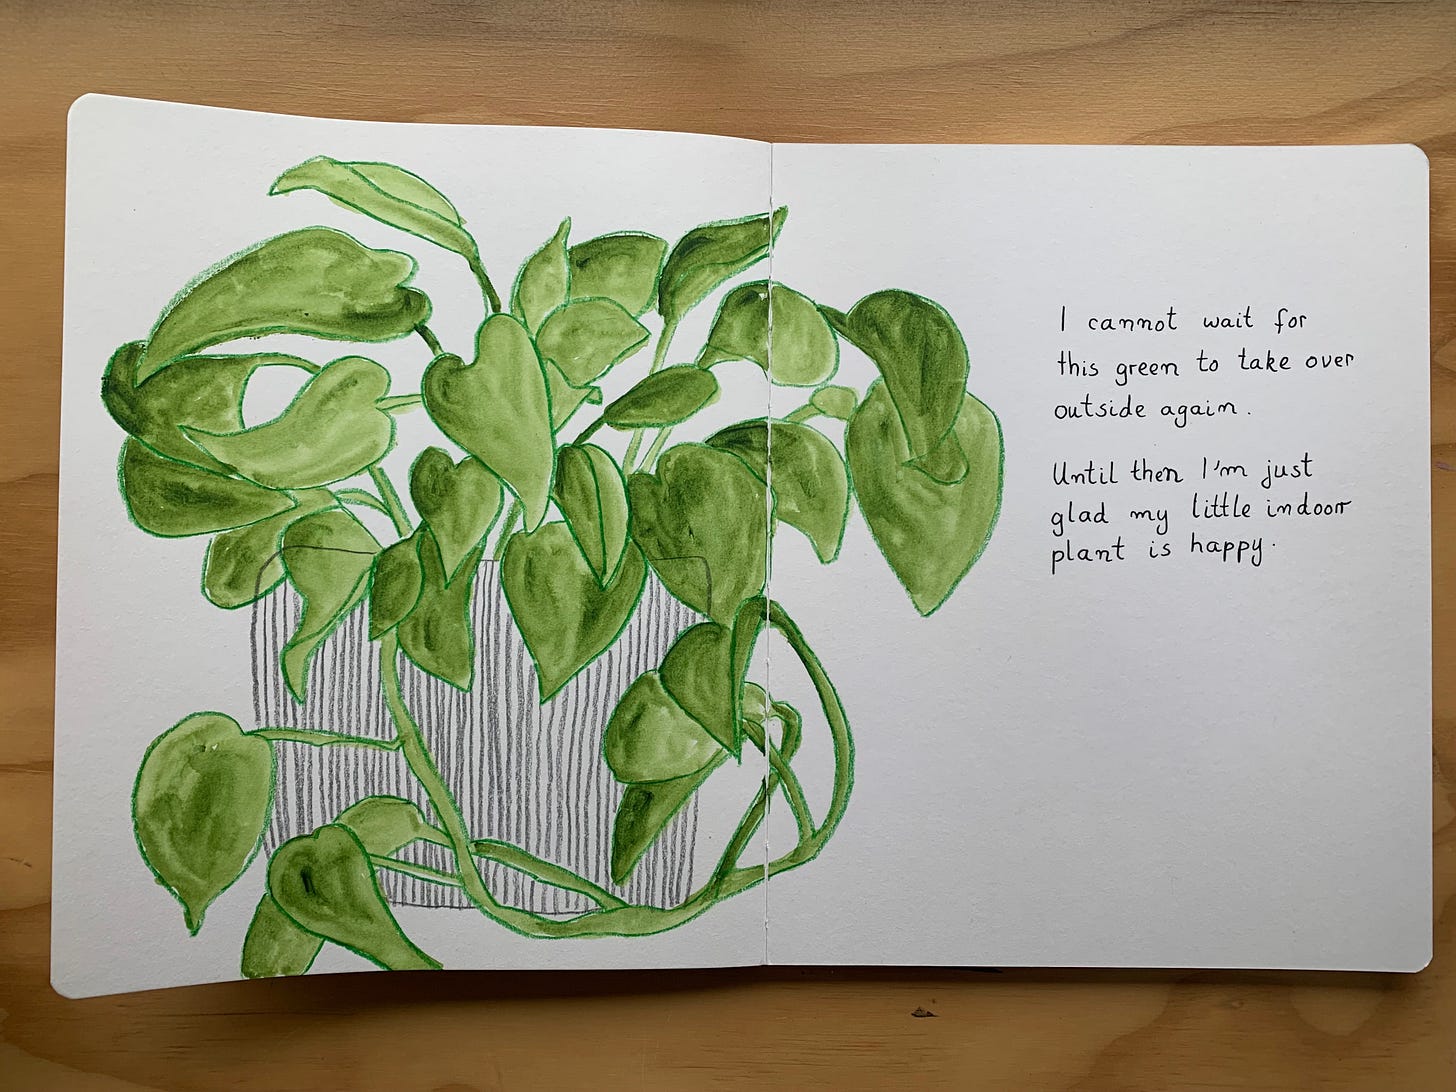 I cannot wait for
this green to take over
outside again.
Until then I'm just
glad my little indoor
plant is happy.